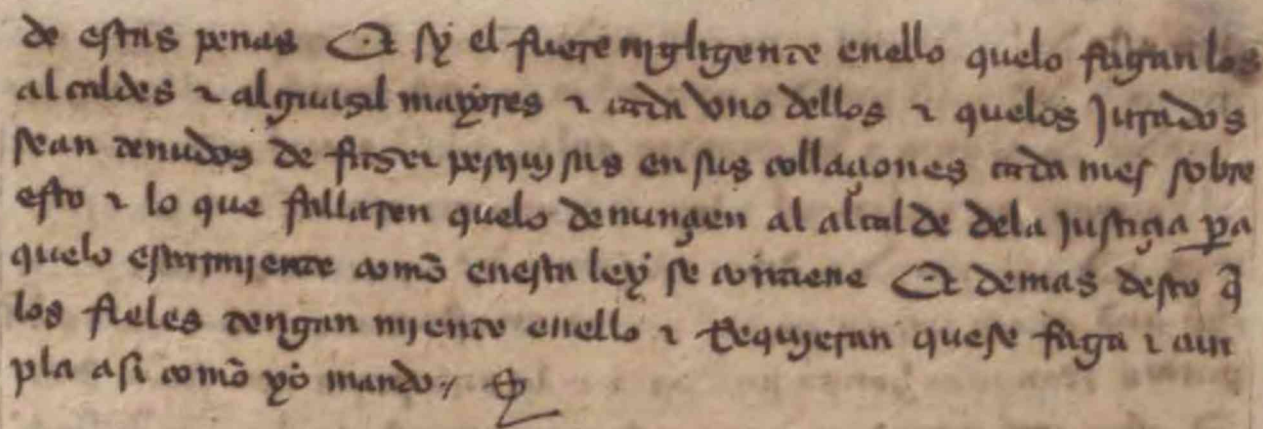 de estas penas Et sy el fuere nigligente enello quelo fagan los
alcaldes ⁊ alguazil mayores ⁊ cada vno dellos ⁊ quelos Jurados
sean tenudos de fazer pesquysas en sus collaçiones cada mes sobre
esto ⁊ lo que fallaren quelo denunçien al alcalde dela justiçia pa
quelo escarmiente comō enesta ley se contiene Et demas desto q̃
los fieles tengan miente enello ⁊ Requieran quese faga ⁊ cun
pla asi comō yo mando